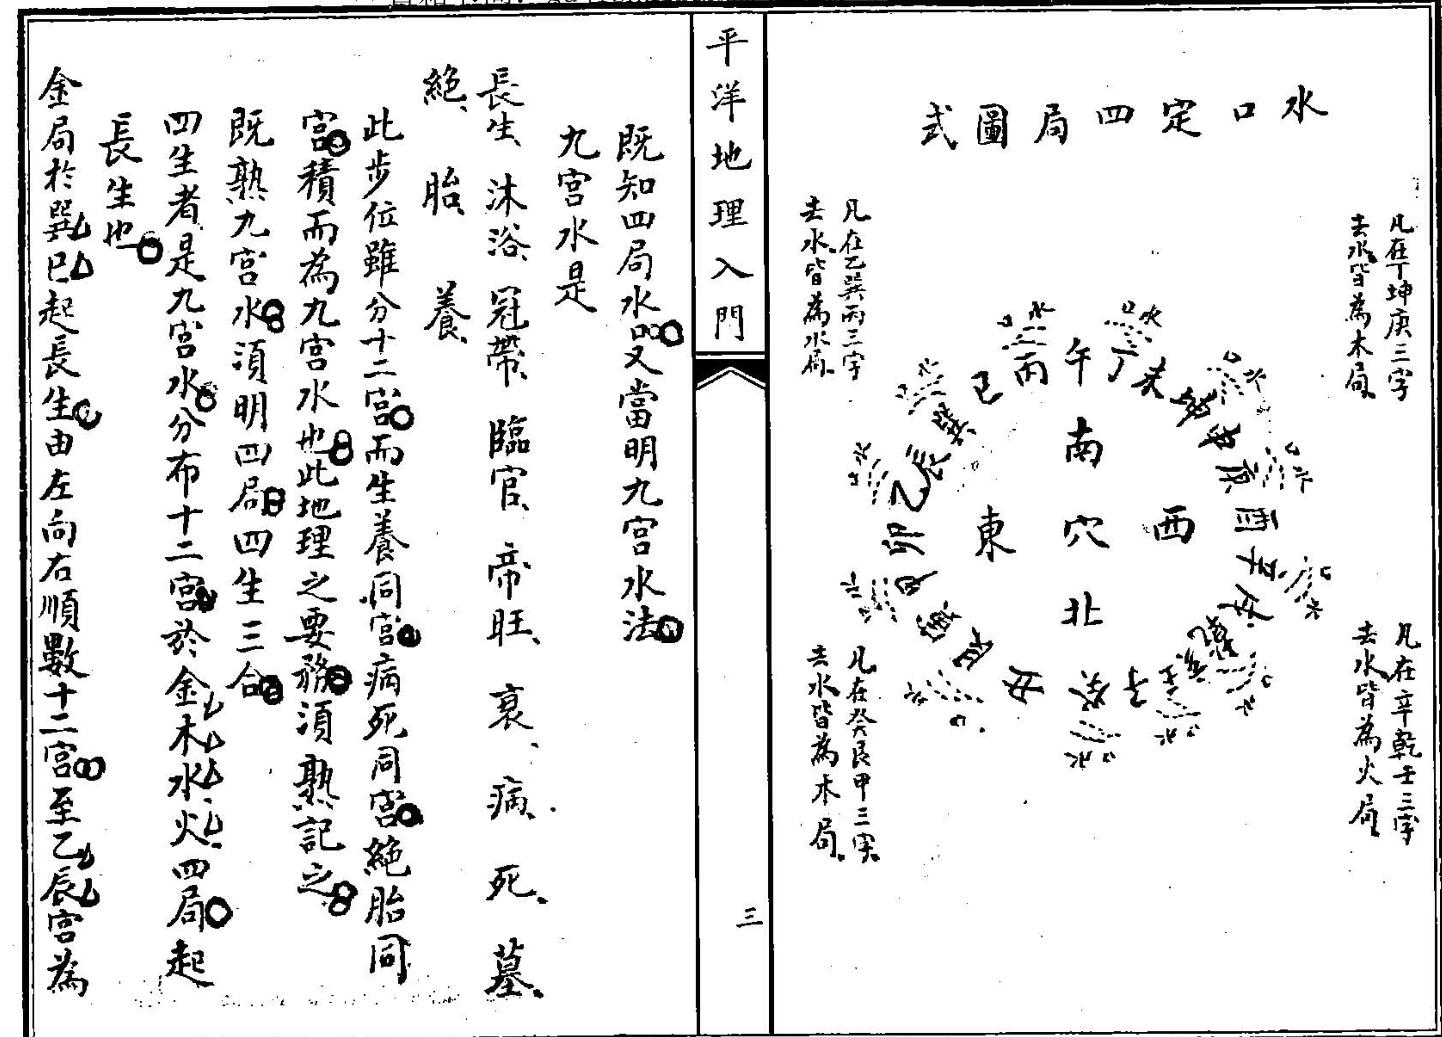 水口定四局圖式
凡在丁坤庚三字
去水皆為木局
凡在乙巽丙三字
去水皆為水局
凡在辛乾壬三字
去水皆為火局
凡在癸艮甲三字
去水皆為木局
午
丁
未
坤
申
庚
酉
辛
戌
乾
亥
壬
子
癸
丑
艮
寅
甲
卯
乙
辰
巽
巳
丙
水口
水口
水口
水口
水口
水口
水口
水口
水口
水口
水口
水口
南
東 穴 西
北
平洋地理入門
三
既知四局水口又當明九宮水法
九宮水是
長生、沐浴、冠帶、臨官、帝旺、衰、病、死、墓、
絕、胎、養、
此步位雖分十二宮而生養同宮病死同宮絕胎同
宮積而為九宮水也此地理之要務須熟記之
既熟九宮水須明四局四生三合
四生者是九宮水分布十二宮於金木水火四局起
長生也
金局於巽巳起長生由左向右順數十二宮至乙辰宮為